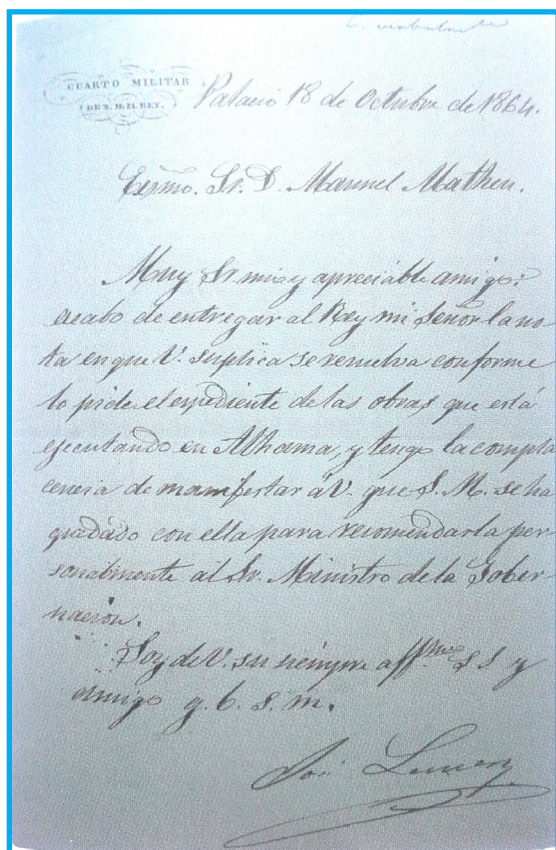 CUARTO MILITAR
DE S. M. EL REY.
Palacio 18 de Octubre de 1864.
Exmo. Sr. D. Manuel Matheu.
Muy Sr mio y apreciable amigo:
acabo de entregar al Rey mi Señor la no-
ta en que V. suplica se resuelva conforme
lo pide el expediente de las obras que está
ejecutando en Alhama, y tengo la compla
cencia de manifestar á V. que S. M. se ha
quedado con ella para recomendarla per-
sonalmente al Sr. Ministro de la Gober
nacion.
Soy de V. su siempre affmo S S y
amigo q. b. s. m.